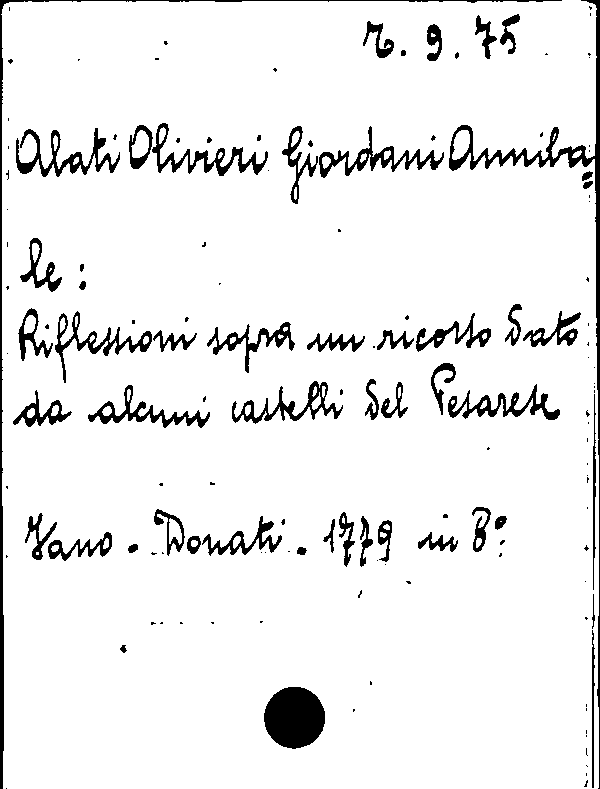 7. 9. 75
Abati Olivieri Giordani Anniba=
le:
Riflessioni sopra un ricorso dato
da alcuni castelli del Pesarese
Fano. Donati. 1779 in 8°: